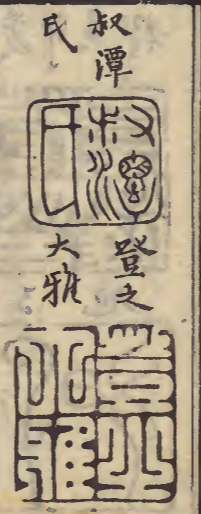 叔潭
氏
叔潭
氏
登之
大雅
登之
大雅